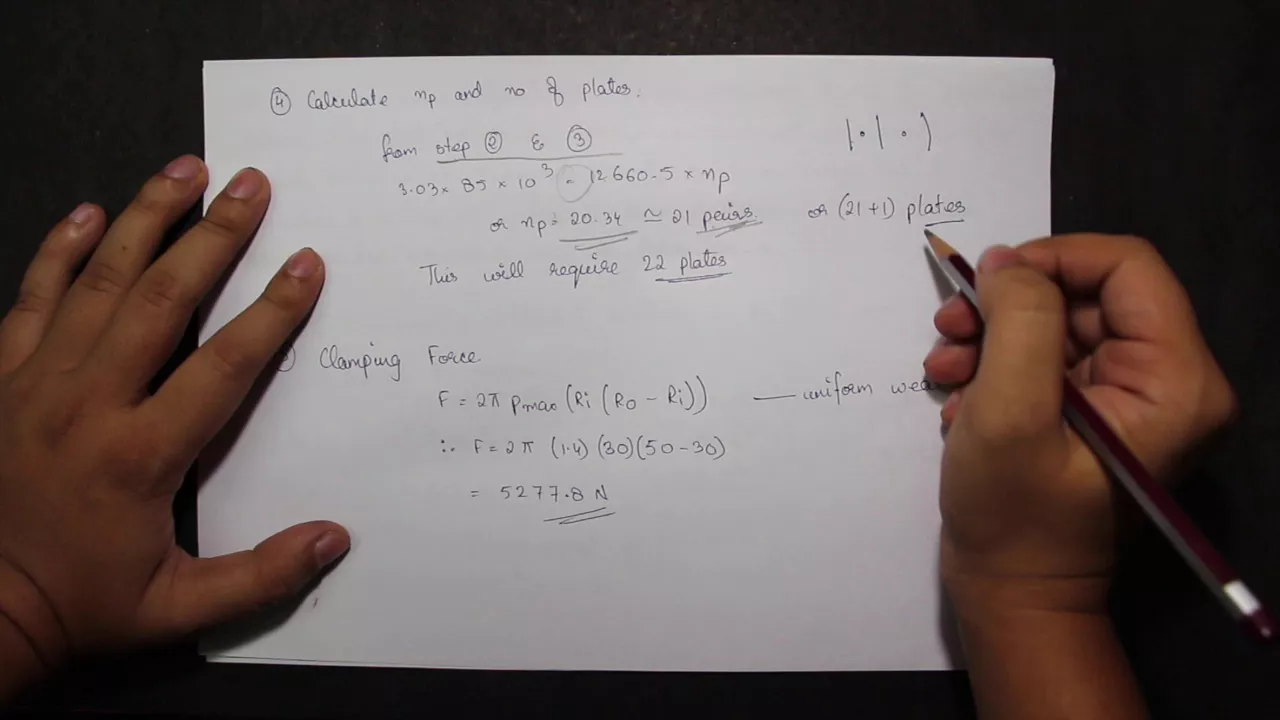 ④ Calculate np and no of plates.
from step ② & ③
3.03 × 85 × 10³ = 12660.5 × np
or np = 20.34 ≃ 21 pairs. or (21+1) plates
This will require 22 plates
Clamping Force
F = 2π pmax (Ri (Ro - Ri)) — uniform
∴ F = 2π (1.4) (30) (50-30)
= 5277.8 N